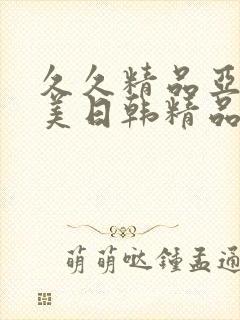 久久精品亞
美日韩精品
萌萌哒鍾孟通